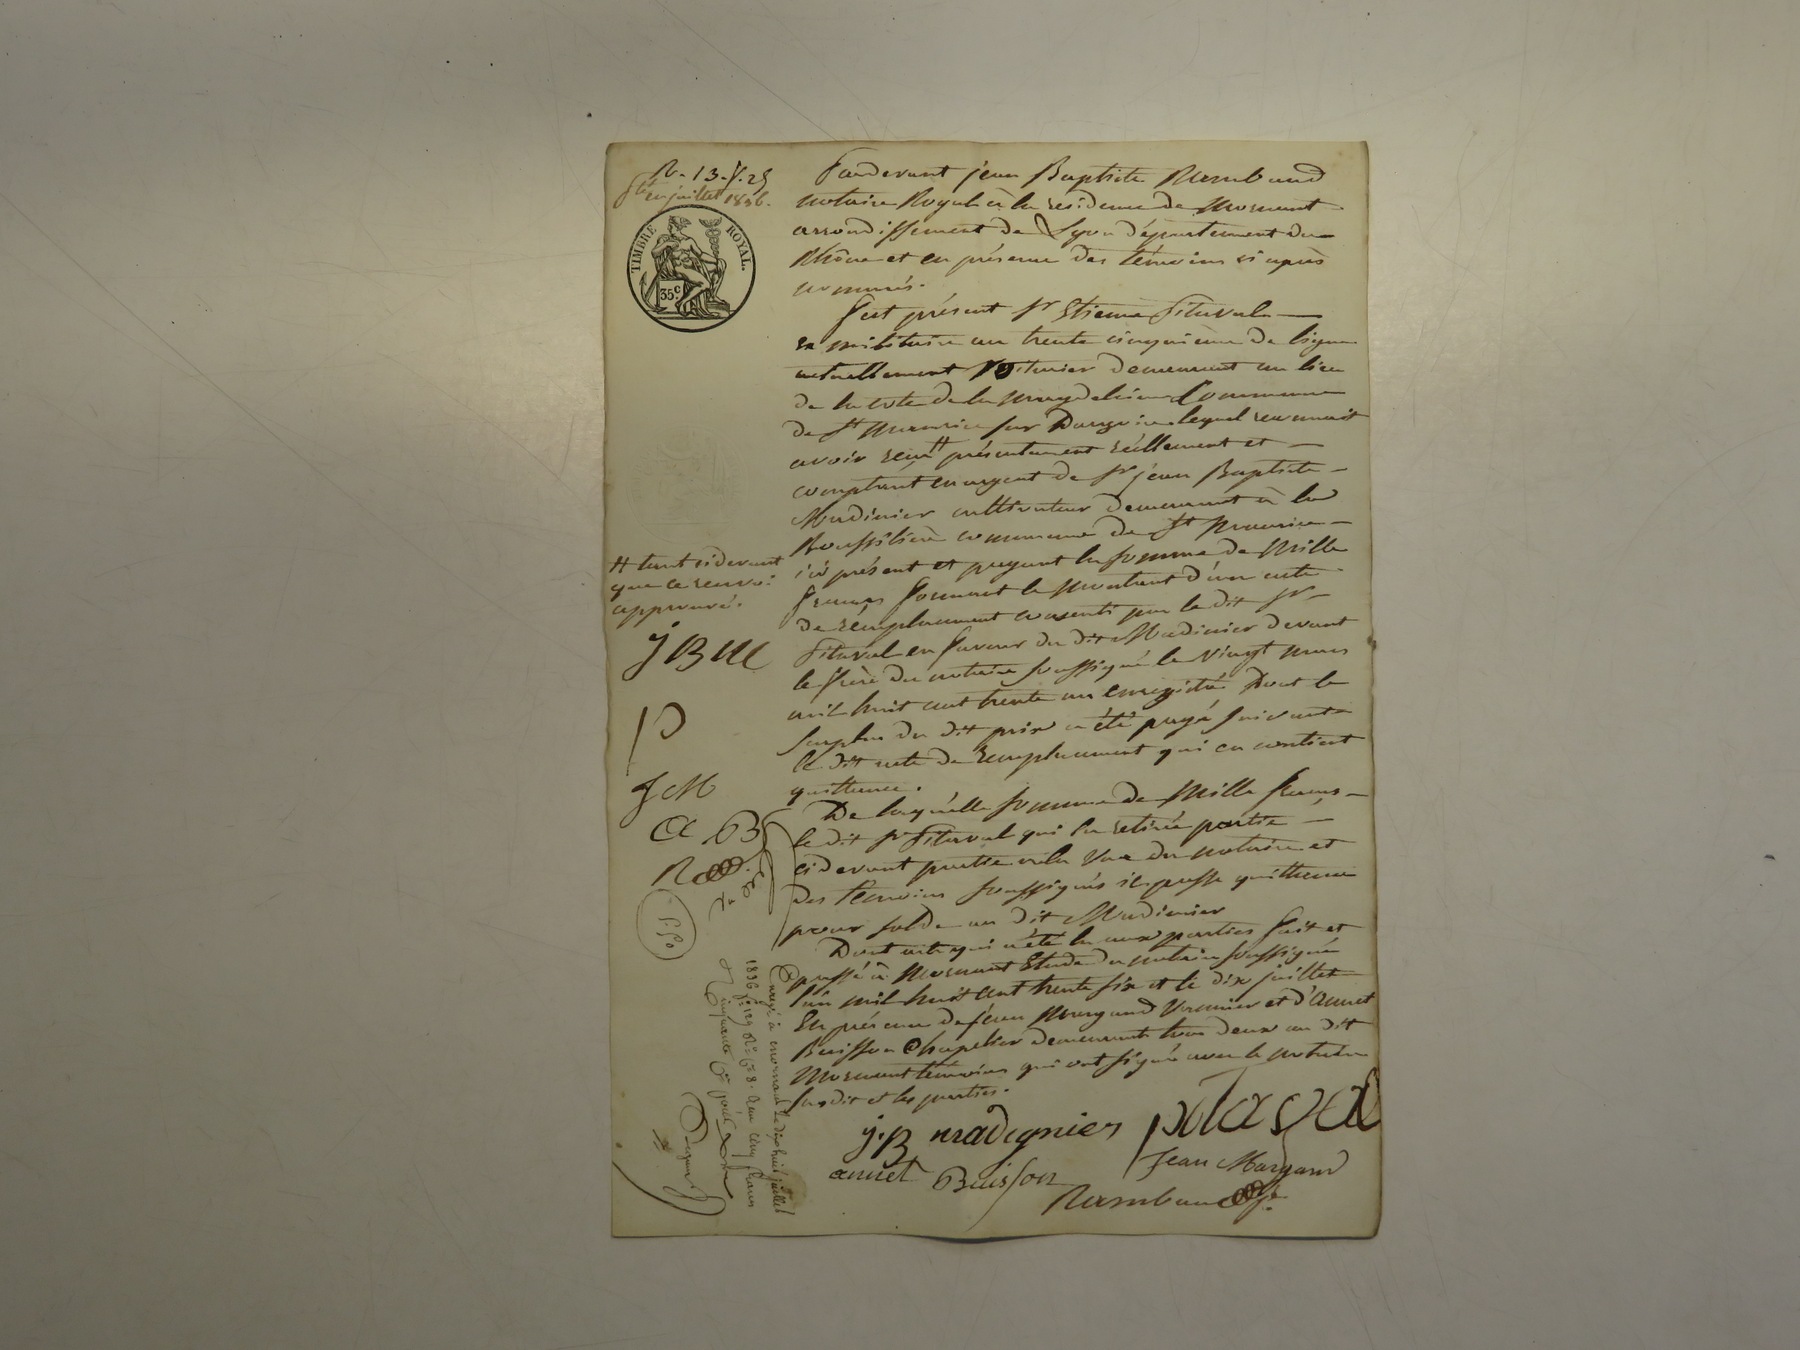 R. 13. f. 25
juillet 1836.
TIMBRE ROYAL.
35 c.
Pardevant jean Baptiste Rambaud
notaire Royal à la residence de Mornant
arrondissement de Lyon département du
Rhône et en présence des témoins ci après
nommés.
fut présent Sr Etienne Pitaval
ex militaire au trente cinquième de ligne
actuellement demeurant au lieu
de la cote de la Magdelaine Commune
de St Maurice sur Dargoire lequel reconnait
avoir reçu # présentement réellement et
comptant en argent de Sr jean Baptiste
Madinier cultivateur demeurant à la
Roussilière commune de St Maurice
ici présent et payant la somme de Mille
francs formant le montant d'un acte
de remplacement consenti par le dit Sr
Pitaval en faveur du dit Madinier devant
le frère du notaire soussigné le vingt mars
mil huit cent trente un enregistré Dont le
surplus du dit prix a été payé suivant
le dit acte de remplacement qui en contient
quittance.
De laquelle somme de Mille francs
le dit Sr Pitaval qui l'a retirée partie
cidevant partie à la vue du notaire et
des témoins soussignés il passe quittance
pour solde au dit Madinier
Dont acte qui a été lu aux parties fait et
passé à Mornant Etude du notaire soussigné
l'an mil huit cent trente six et le dix juillet
En présence de jean Margand et d'Annet
Buisson Chapelier demeurant tous deux au dit
Mornant témoins qui ont signé avec le notaire
susdit et les parties.
# tant cidevant
que ce renvoi
approuvé.
j B M
P
J M
A B
R
Enregé à mornant le dix huit juillet
1836 fo 129 Ro Ce 8. Reçu cinq francs
cinquante ce
j. B madignier pitaval
annet Buisson Jean Margand
Rambaud